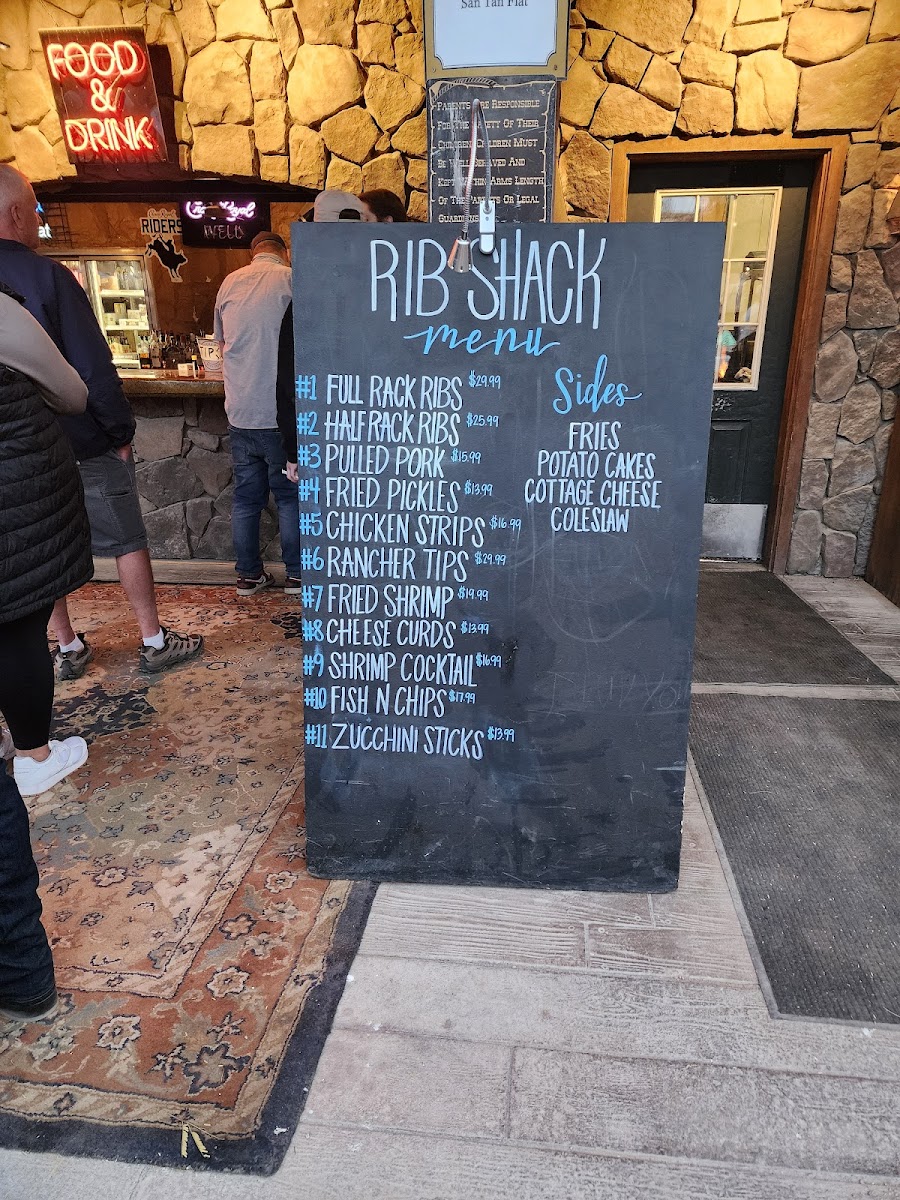 San Tan Flat
FOOD
&
DRINK
Parents Are Responsible
For The Safety Of Their
Children Children Must
Be Well Behaved And
Kept Within Arms Length
Of The Parents Or Legal
Guardians
RIDERS
Crown Royal
RIB SHACK
menu
#1 FULL RACK RIBS $29.99
#2 HALF RACK RIBS $25.99
#3 PULLED PORK $15.99
#4 FRIED PICKLES $13.99
#5 CHICKEN STRIPS $16.99
#6 RANCHER TIPS $29.99
#7 FRIED SHRIMP $19.99
#8 CHEESE CURDS $13.99
#9 SHRIMP COCKTAIL $16.99
#10 FISH N CHIPS $17.99
#11 ZUCCHINI STICKS $13.99
Sides
FRIES
POTATO CAKES
COTTAGE CHEESE
COLESLAW